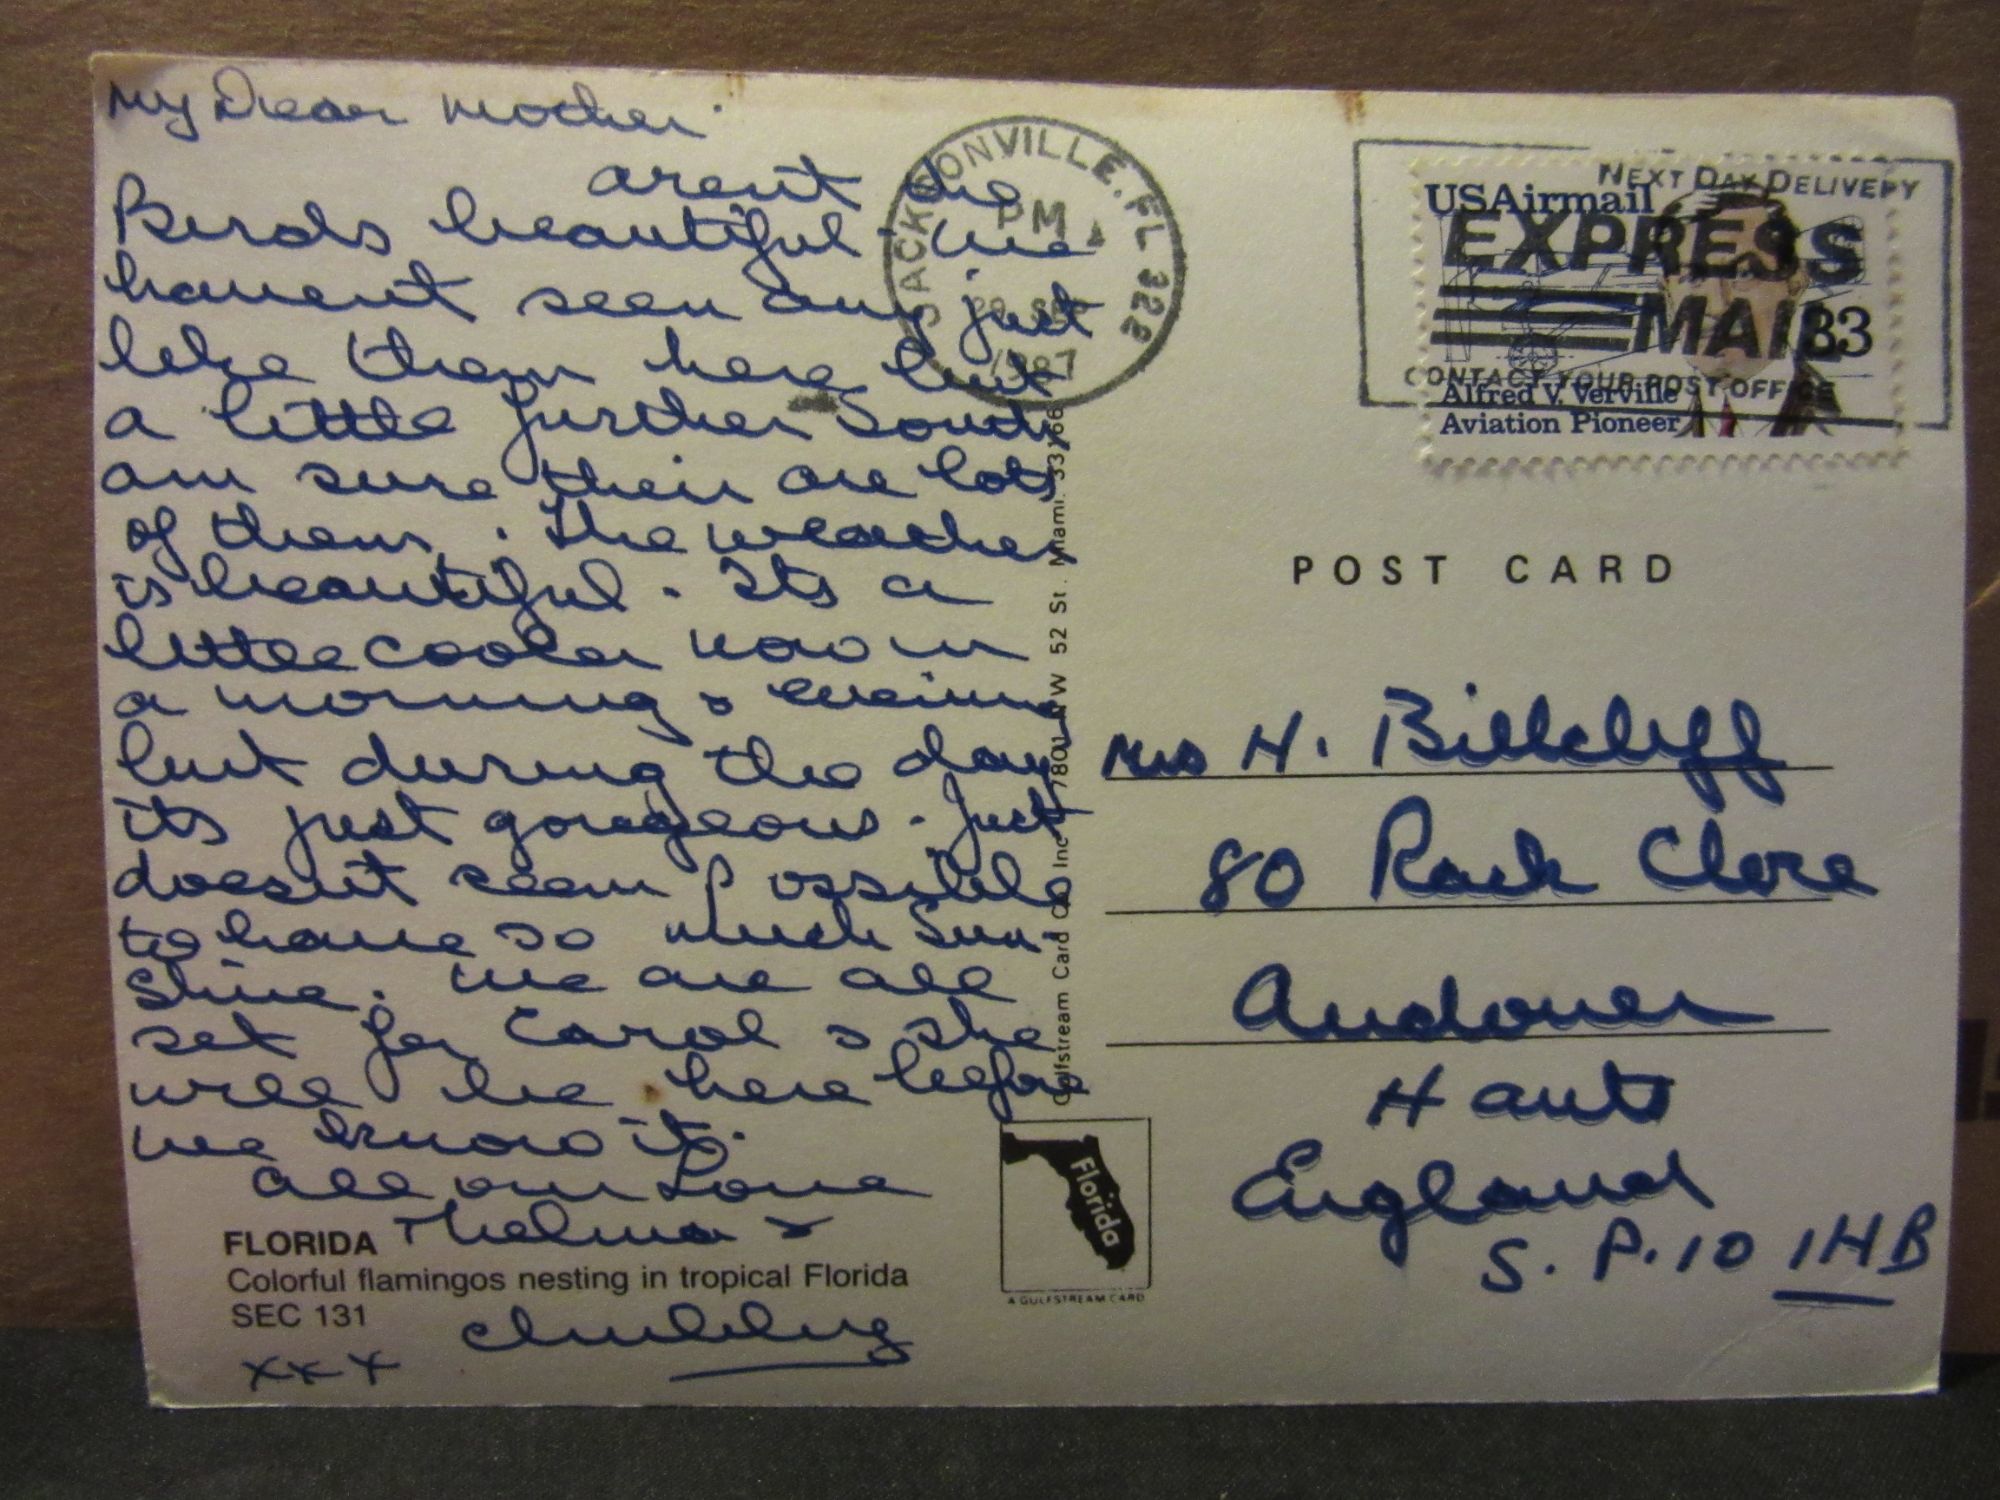 My Dear Mother.
arent the
Birds beautiful. We
havent seen any just
like them here but
a little further South
am sure their are lots
of them. The weather
is beautiful. Its a
little cooler now in
a morning & evening
but during the day
its just gorgeous. Just
doesn't seem possible
to have so much Sun
Shine. We are all
set for Carol & she
will be here before
we know it.
All our Love
Thelma &
Chubbby
xxx
FLORIDA
Colorful flamingos nesting in tropical Florida
SEC 131
Gulfstream Card Co Inc 7801 NW 52 St. Miami. 33166
Florida
A GULFSTREAM CARD
JACKSONVILLE, FL 322
PM
1987
NEXT DAY DELIVERY
EXPRESS
MAIL
CONTACT YOUR POST OFFICE
USAirmail
33
Alfred V. Verville
Aviation Pioneer
POST CARD
Mrs H. Billcliff
80 Rack Close
Andover
Hants
England
S.P.10 1HB